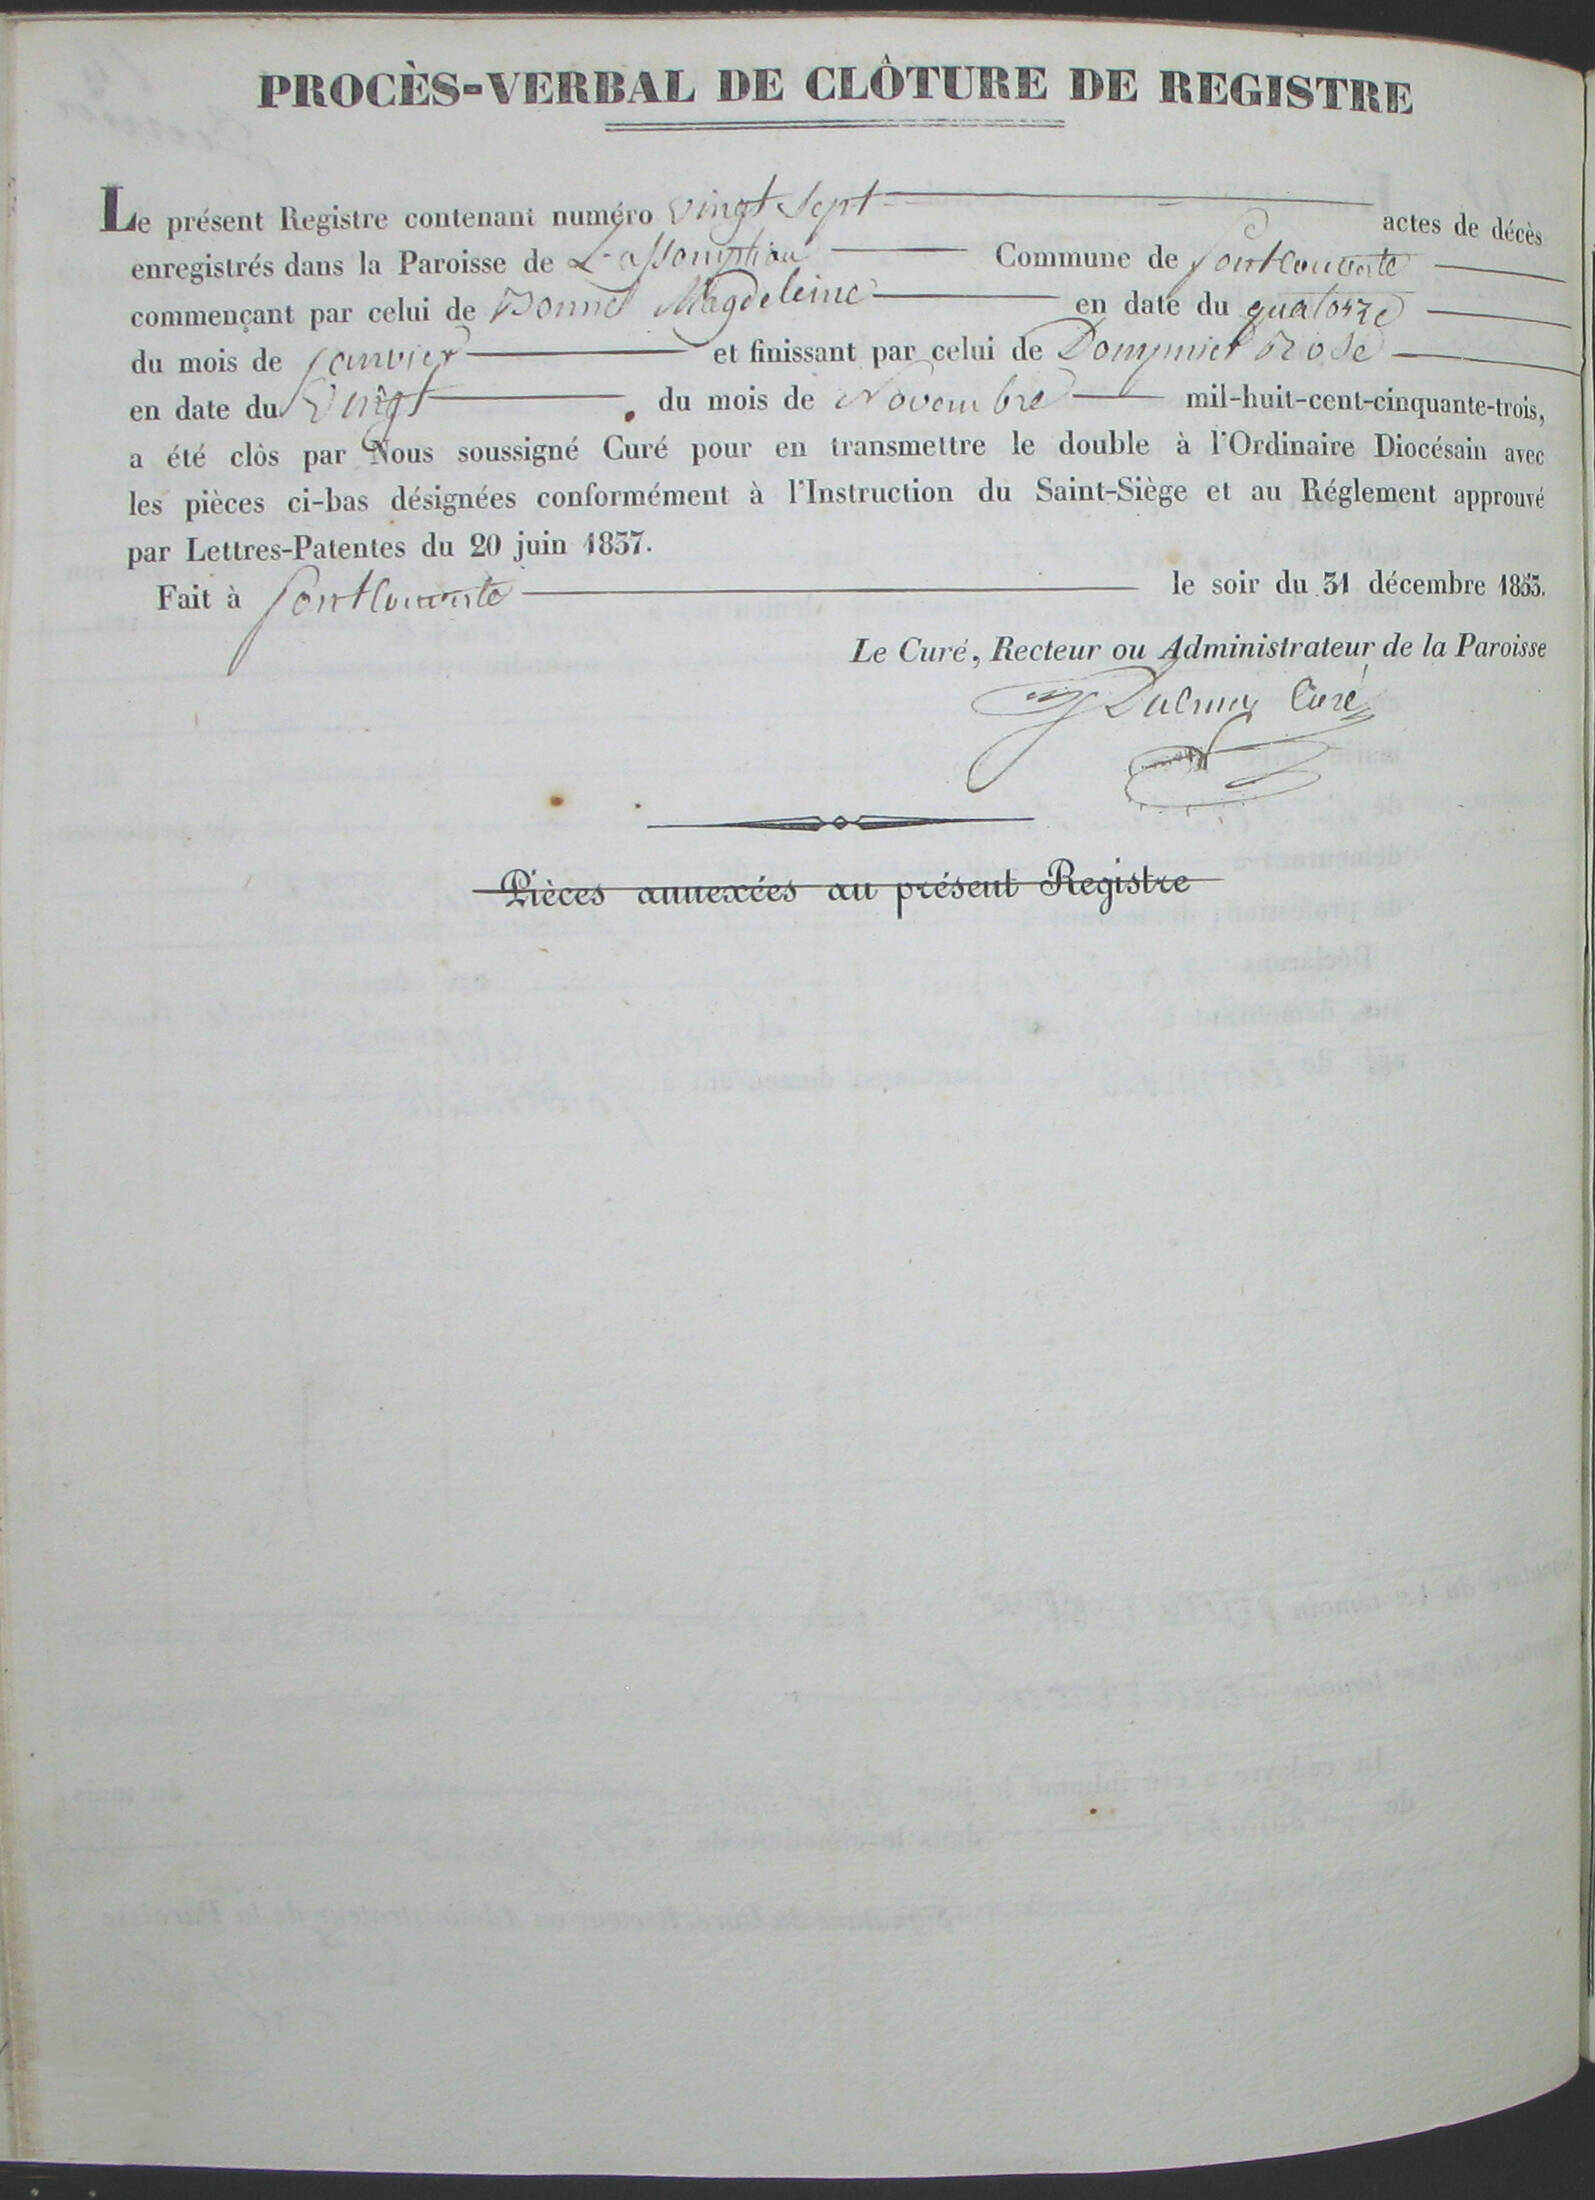 PROCÈS-VERBAL DE CLÔTURE DE REGISTRE
Le présent Registre contenant numéro vingt sept actes de décès
enregistrés dans la Paroisse de L'assomption Commune de Pontcouverte
commençant par celui de Bonnet Magdeleine en date du quatorze
du mois de janvier et finissant par celui de Dompmier Rose
en date du Vingt du mois de Novembre mil-huit-cent-cinquante-trois,
a été clòs par Nous soussigné Curé pour en transmettre le double à l'Ordinaire Diocésain avec
les pièces ci-bas désignées conformément à l'Instruction du Saint-Siège et au Réglement approuvé
par Lettres-Patentes du 20 juin 1837.
Fait à Pontcouverte le soir du 31 décembre 1853.
Le Curé, Recteur ou Administrateur de la Paroisse
Curé
Pièces annexées au présent Registre